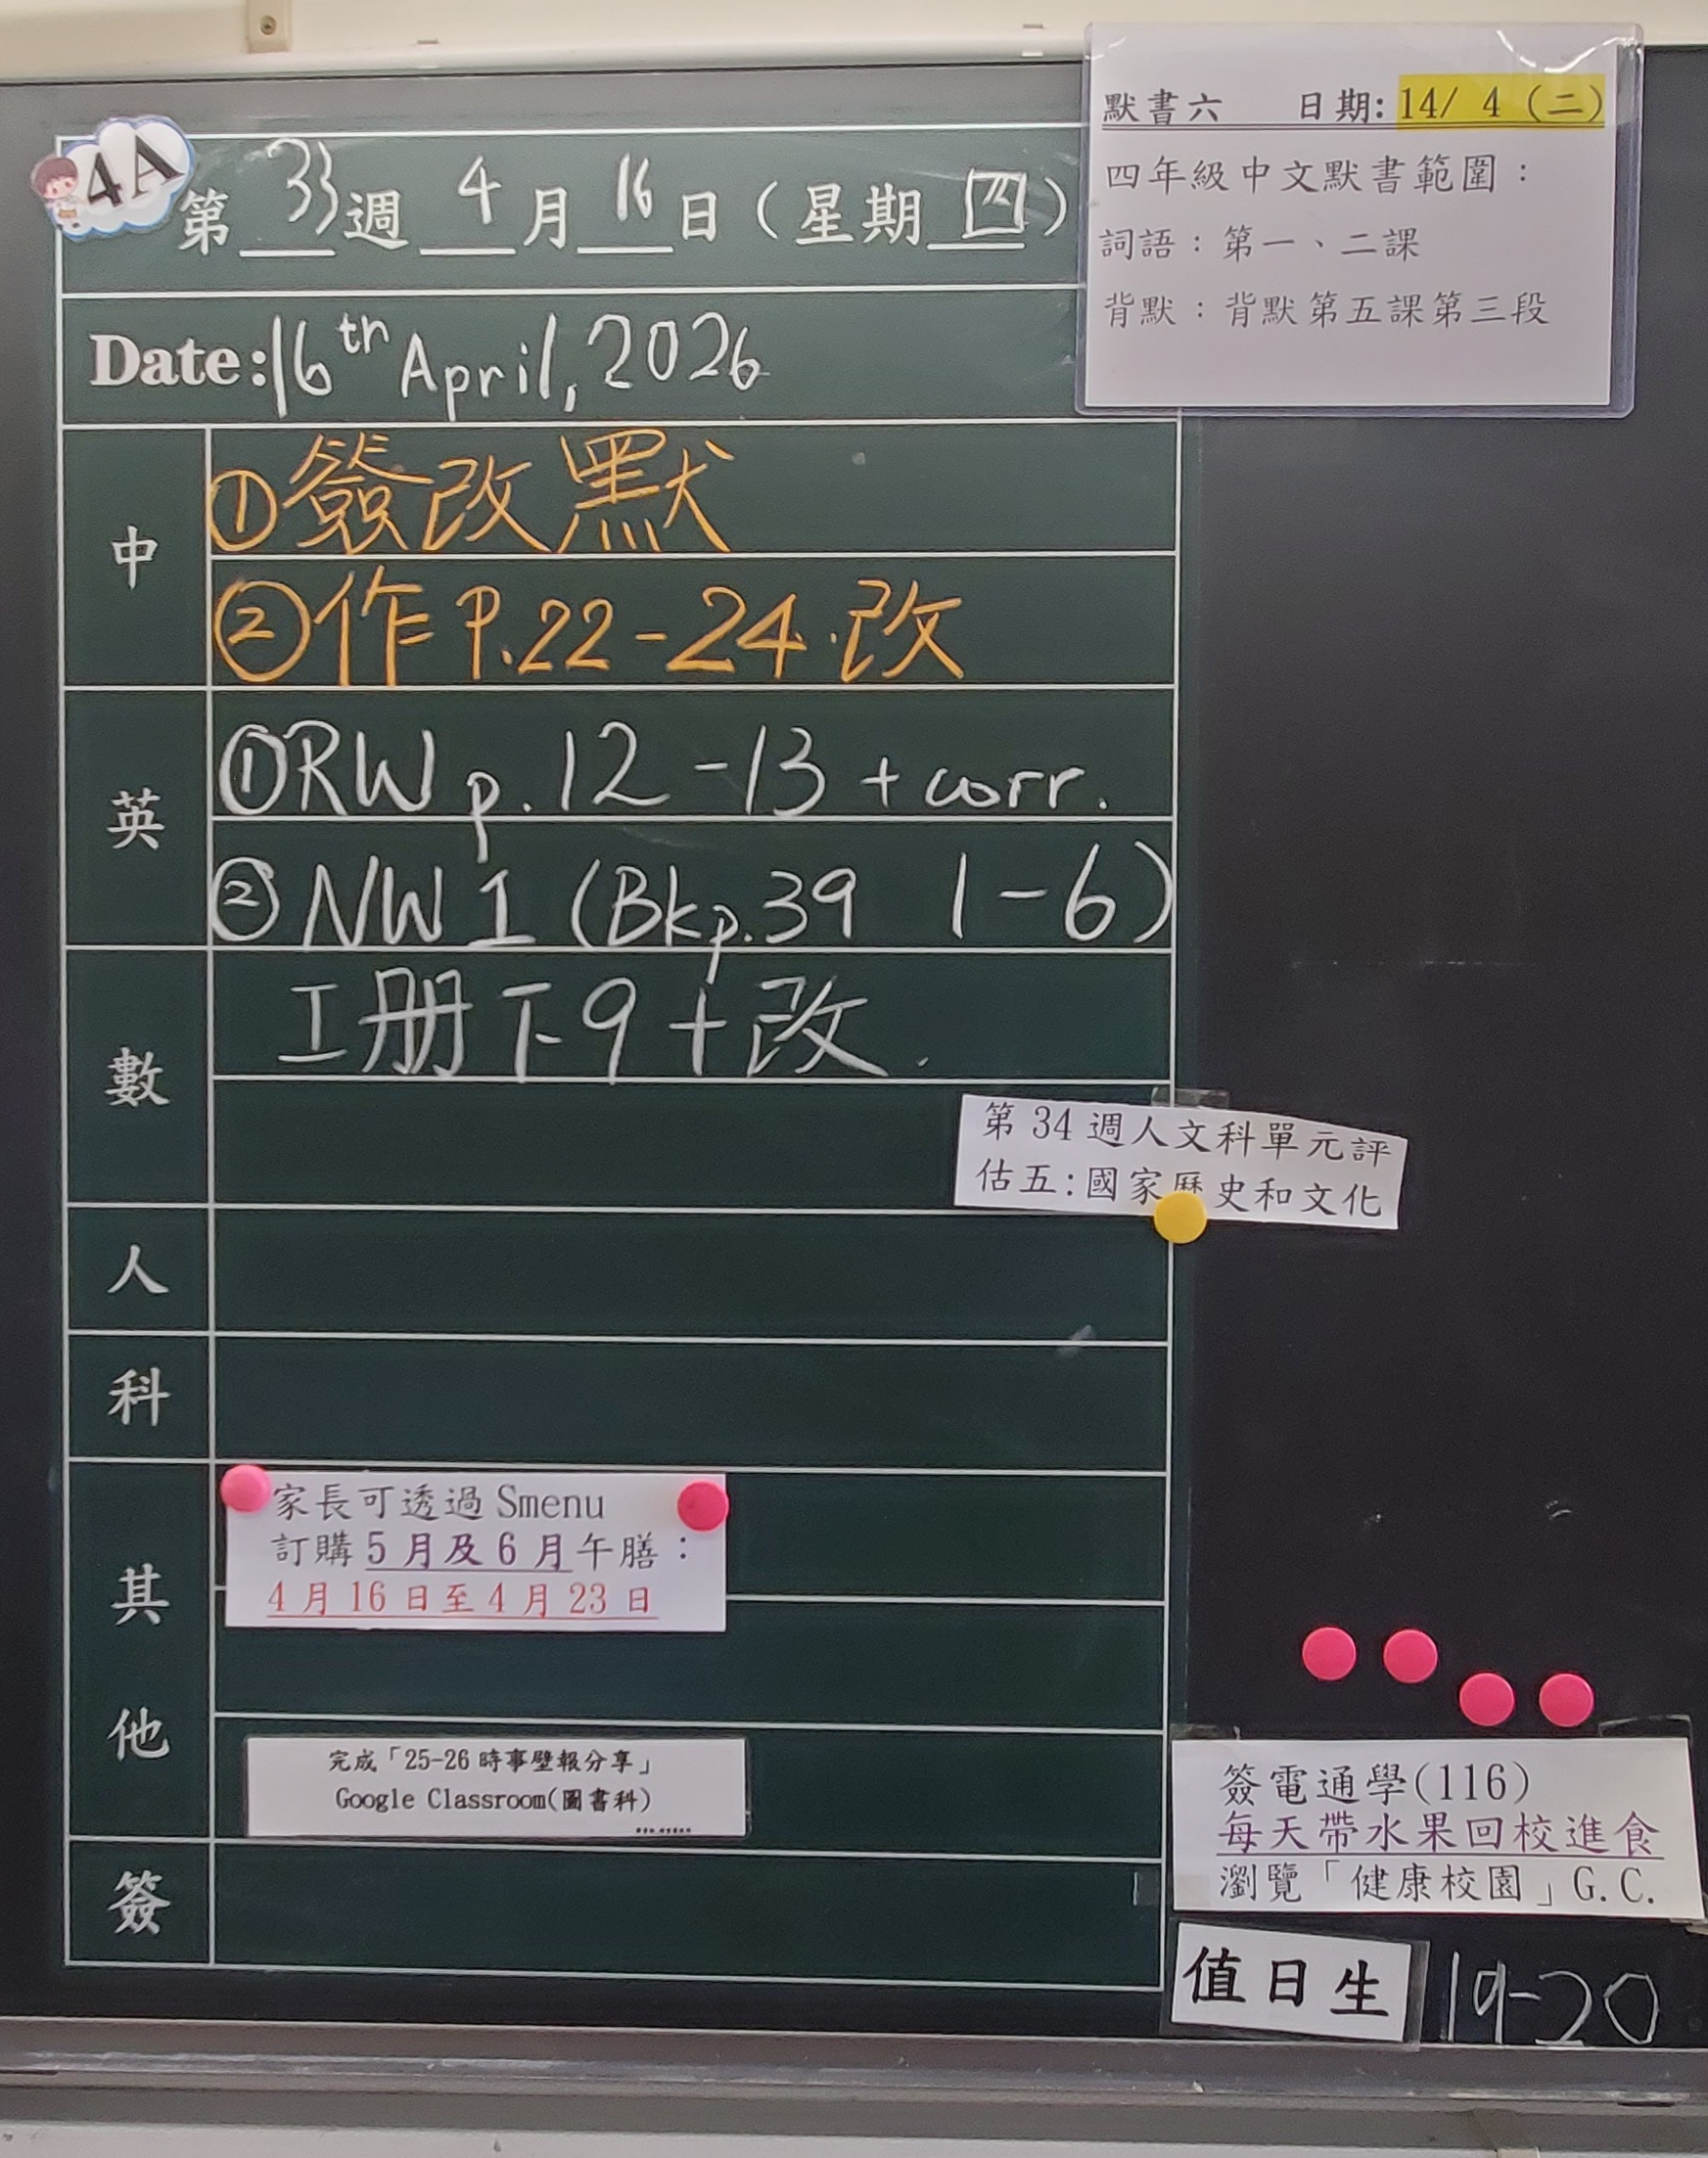 4A
第 33 週 4 月 16 日（星期 四）
Date: 16th April, 2026
默書六 日期: 14/ 4 (二)
四年級中文默書範圍：
詞語：第一、二課
背默：背默第五課第三段
中
①簽改默
②作 P.22-24.改
英
①RW p. 12-13 + corr.
②NW 1 (Bk p.39 1-6)
數
工册下9+改.
第 34 週人文科單元評
估五:國家歷史和文化
人
科
其
他
家長可透過 Smenu
訂購 5 月及 6 月午膳：
4 月 16 日至 4 月 23 日
完成「25-26 時事壁報分享」
Google Classroom(圖書科)
簽
簽電通學(116)
每天帶水果回校進食
瀏覽「健康校園」G.C.
值日生 19-20